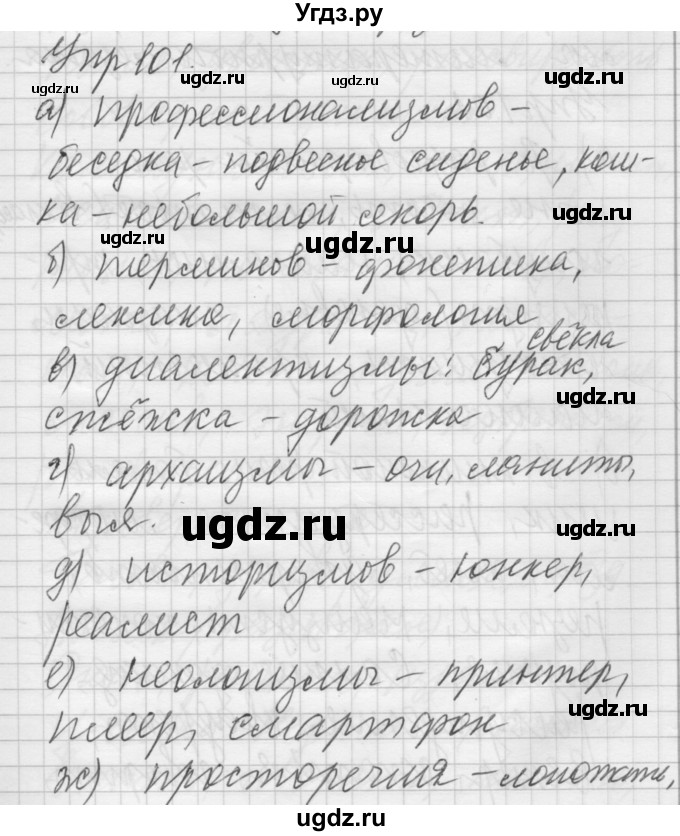 Угдз.ру
Упр 101.
а) профессионализмов –
беседка – подвесное сиденье, кош-
ка – небольшой якорь.
б) терминов – фонетика,
лексика, морфология
свёкла
в) диалектизмы: бурак,
стёжка – дорожка
г) архаизмы – очи, ланиты,
выя.
д) историзмов – юнкер,
реалист
е) неологизмы – принтер,
плеер, смартфон
ж) просторечия – ложать,
ugdz.ru
ugdz.ru
ugdz.ru
ugdz.ru
ugdz.ru
ugdz.ru
ugdz.ru
ugdz.ru
ugdz.ru
ugdz.ru
ugdz.ru
ugdz.ru